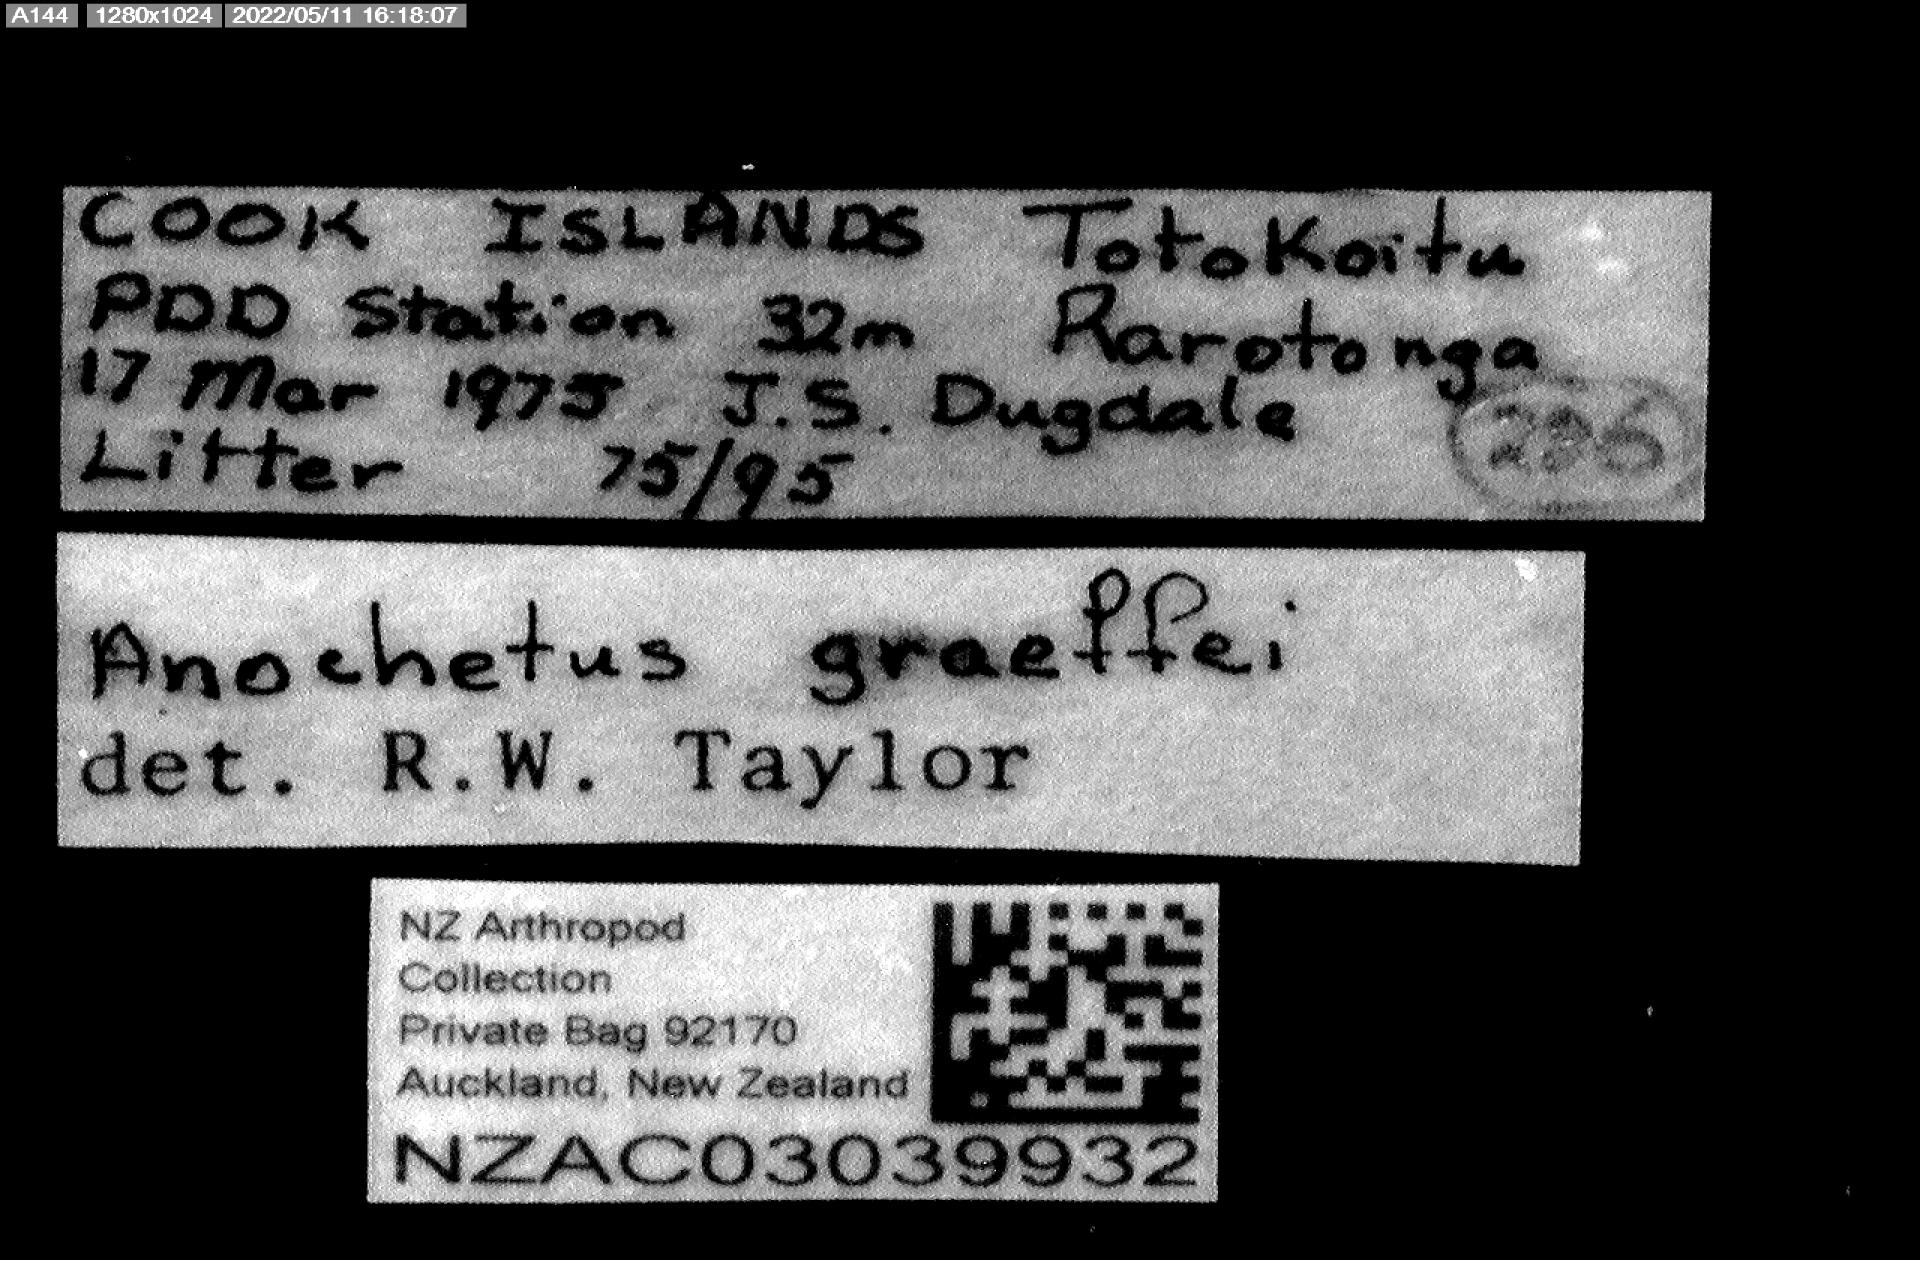 A144 1280x1024 2022/05/11 16:18:07
COOK ISLANDS Totokoitu
PDD Station 32m Rarotonga
17 Mar 1975 J.S. Dugdale
Litter 75/95
Anochetus graeffei
det. R.W. Taylor
NZ Arthropod
Collection
Private Bag 92170
Auckland, New Zealand
NZAC03039932